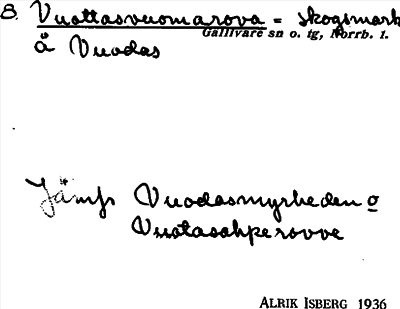 8. Vuottasvuomarova = skogsmark
Gällivare sn o. tg, Norrb. l.
å Vuodas
Jämfs Vuodasmyrheden o
Vuotasahperovve
ALRIK ISBERG 1936